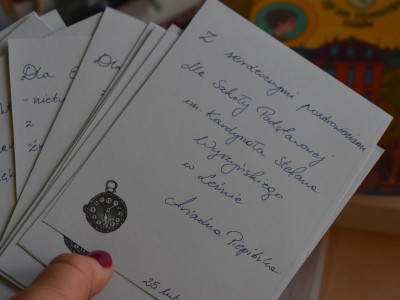 Z serdecznymi pozdrowieniami
dla Szkoły Podstawowej
im Kardynała Stefana
Wyszyńskiego
w Leśnie
Ariadna Piepiórka
25 lut
Dla
Dla
- niety
z